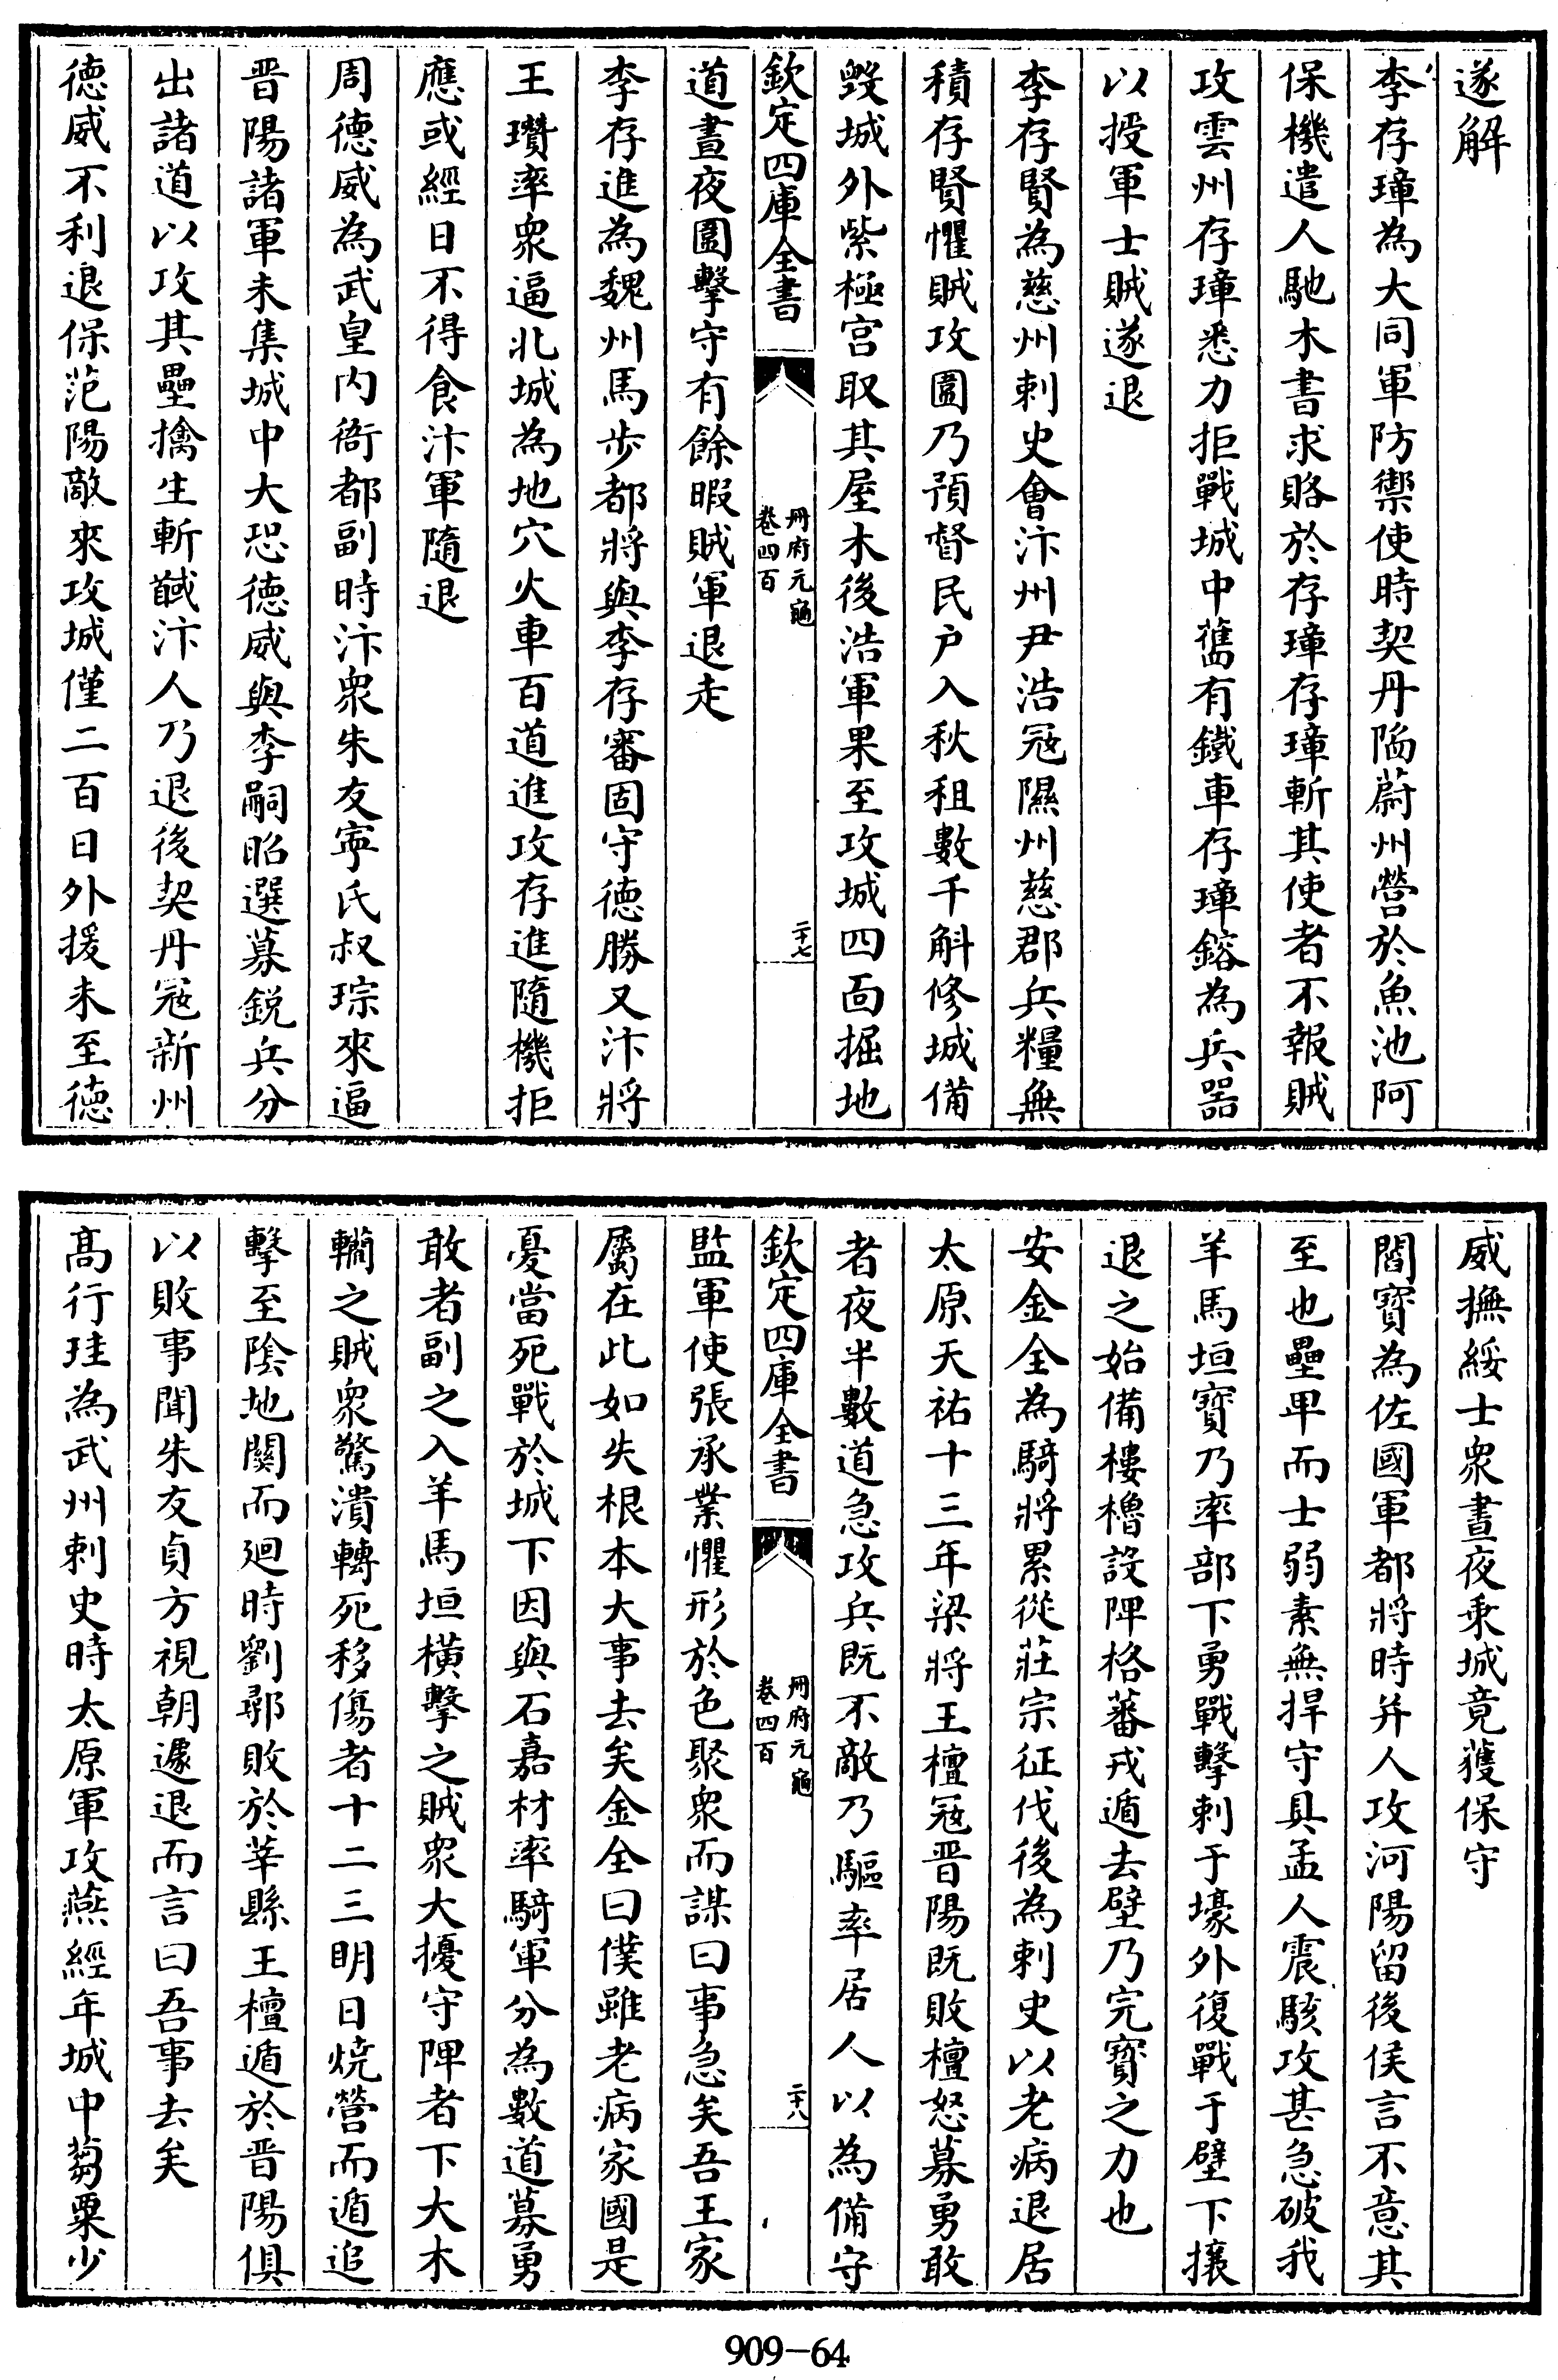 遂解
李存璋為大同軍防禦使時契丹陷蔚州營於魚池阿
保機遣人馳木書求賂於存璋存璋斬其使者不報賊
攻雲州存璋悉力拒戰城中舊有鐵車存璋鎔為兵器
以授軍士賊遂退
李存賢為慈州刺史會汴州尹浩冦隰州慈郡兵糧無
積存賢懼賊攻圍乃預督民户入秋租數千斛修城備
毀城外紫極宫取其屋木後浩軍果至攻城四面掘地
欽定四庫全書
冊府元龜
卷四百
二十七
道晝夜圍擊守有餘暇賊軍退走
李存進為魏州馬步都將與李存審固守德勝又汴將
王瓚率衆逼北城為地穴火車百道進攻存進隨機拒
應或經日不得食汴軍隨退
周德威為武皇内衙都副時汴衆朱友寧氏叔琮來逼
晋陽諸軍未集城中大恐德威與李嗣昭選募鋭兵分
出諸道以攻其壘擒生斬馘汴人乃退後契丹冦新州
德威不利退保范陽敵來攻城僅二百日外援未至德
威撫綏士衆晝夜乘城竟獲保守
閻寶為佐國軍都將時并人攻河陽留後侯言不意其
至也壘卑而士弱素無捍守具孟人震駭攻甚急破我
羊馬垣寶乃率部下勇戰擊刺于壕外復戰于壁下攘
退之始備樓櫓設陴格蕃戎遁去壁乃完寶之力也
安金全為騎將累從莊宗征伐後為刺史以老病退居
太原天祐十三年梁將王檀冦晋陽既敗檀怒募勇敢
者夜半數道急攻兵既不敵乃驅率居人以為備守
欽定四庫全書
冊府元龜
卷四百
二十八
監軍使張承業懼形於色聚衆而謀曰事急矣吾王家
屬在此如失根本大事去矣金全曰僕雖老病家國是
憂當死戰於城下因與石嘉材率騎軍分為數道募勇
敢者副之入羊馬垣橫擊之賊衆大擾守陴者下大木
轥之賊衆驚潰轉死移傷者十二三明日燒營而遁追
擊至陰地關而廻時劉鄩敗於莘縣王檀遁於晋陽俱
以敗事聞朱友貞方視朝遽退而言曰吾事去矣
髙行珪為武州刺史時太原軍攻燕經年城中芻粟少
909-64